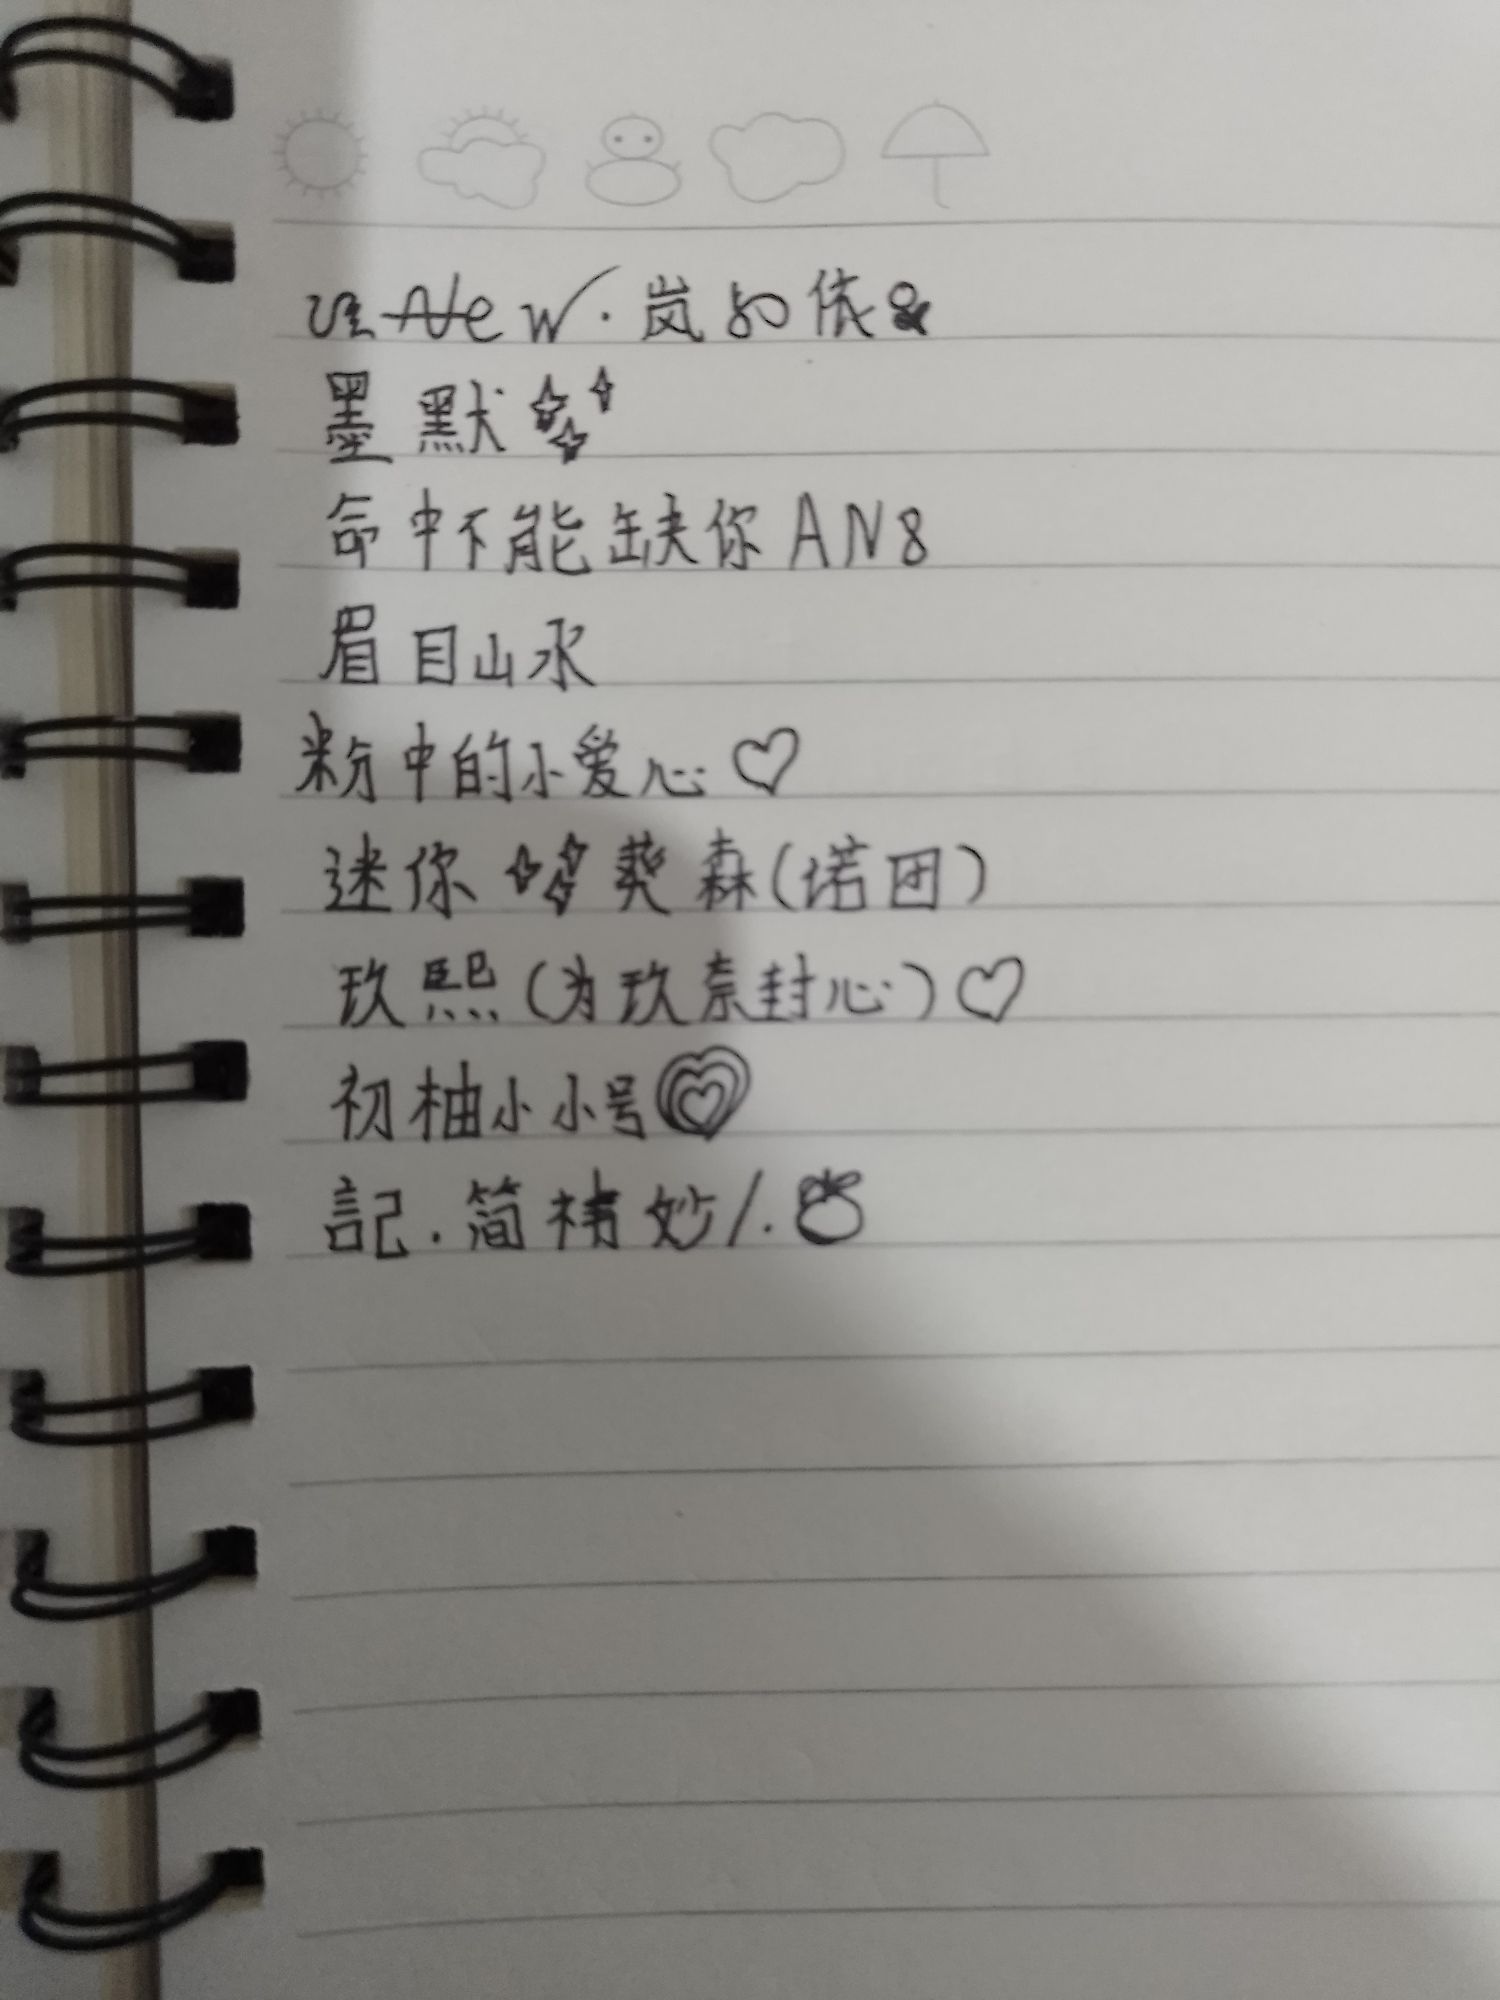 New.岚如依
墨默
命中不能缺你AN8
眉目山水
粉中的小爱心♡
迷你 葵森(诺团)
玖熙(为玖奈封心)♡
初柚小小号
記.简 妙/.